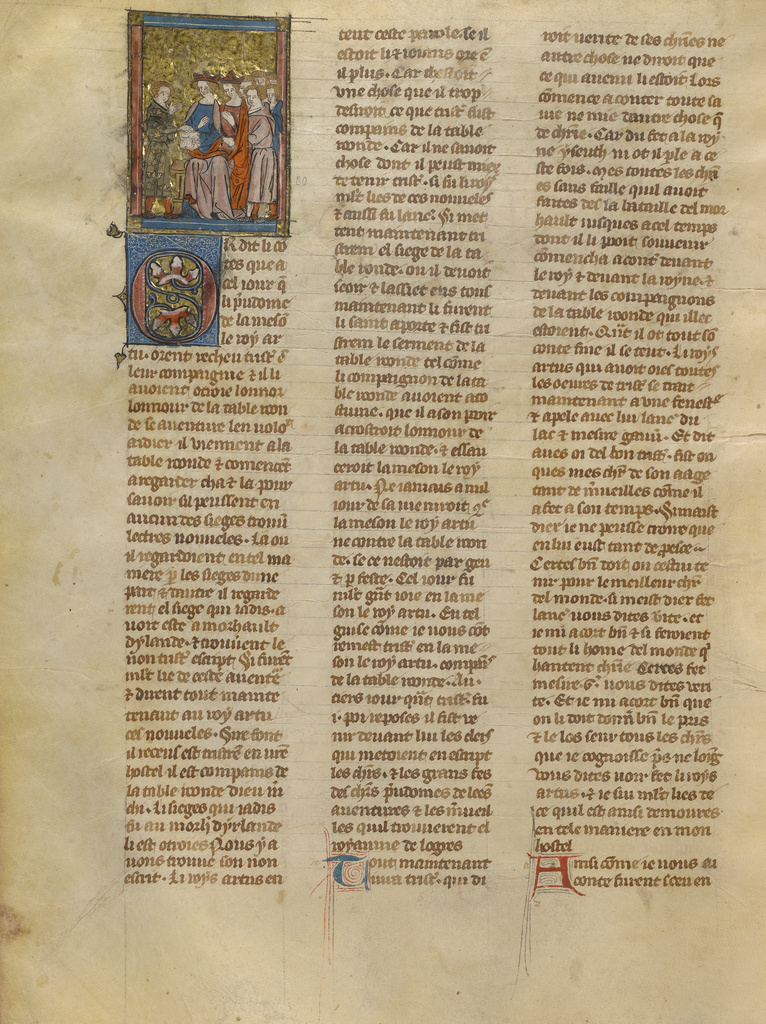 R dit li cō
tes que a
cel iour q̄
li p̄udome
de la mesō
le roy ar
tu. orent recheu trist̄ ē
leur compaignie ⁊ il li
auoient otroie lonnor
lonnour de la table ron
de se auenture len uolo
aidier il viennent a la
table ronde ⁊ comencēt
a regarder cha ⁊ la pour
sauoir sil peussent en
aucun des sieges trouū
lectres nouueles. La ou
il regardoient en tel ma
niere p̄ les sieges dune
part ⁊ dautre il regarde
rent el siege qui iadis a
uoit este a morhault
dylande. ⁊ trouuent le
non trist̄ escript. Si furēt
mlt̄ lie de ceste auentē
⁊ dient tout mainte
tenant au roy artu
ces nouueles. Sire font
il receus est tristrē en urē
hostel il est compains de
la table ronde dieu m̄
chi. Li sieges qui iadis
fu au morh dyrlande
li est otroies Nous y a
uons trouue son non
escrit. Li roys artus en
tent ceste parole se il
estoit liz ⁊ ioians ore ē
il plus. Car che estoit
vne chose que il trop
desiroit ce que trist̄ fust
compains de la table
ronde. Car il ne sauoit
chose dont il peust miex
retenir trist̄. si fu li roys
mlt̄ lies de ces nouueles
⁊ aussi fu lanc̄. Si met
tent maintenant tri
strem el siege de la ta
ble ronde. ou il deuoit
seoir ⁊ lassiet ens tout
maintenant li furent
li saint aporte ⁊ fist tri
strem le serment de la
table ronde tel cōme
li compaignon de la ta
ble ronde auoient aco
stume. que il a son pooir
acroistroit lonnour de
la table ronde. ⁊ essau
ceroit la meson le roy
artu. Ne iamais a nul
iour de sa vie niroit ꝯtͤ
la meson le roy artu
ne contre la table ron
de. se ce nestoit par geu
⁊ p̄ feste. Cel iour fu
mlt̄ grāt ioie en la me
son le roy artu. En tel
guise cōme ie uous cōt
remest trist̄ en la me
son le roy artu. compaīs
de la table ronde. Au
tiers iour qūt trist̄ fu
.i. poi reposes il fist ve
nir deuant lui les clers
qui metoient en escript
les chrs̄. ⁊ les grans fes
des chrs̄ p̄udomes de lees
auentures ⁊ les m̄ueil
les quil trouuerent el
royaume de logres
Tout maintenant
iura trist̄. qui di
roit uerite de ses chrīes ne
autre chose ne diroit que
ce qui auenu li estoit Lors
cōmence a conter toute sa
uie ne nue dautre chose q̄
de chrīe. Car du fet a la roy
ne yseuth ni ot il ple a ce
ste fois. Mes contes les chrī
es sans faille quil auoit
faites des la bataille del mor
hault iusques a cel temps
dont il li pooit souuenir
cōmencha a contē deuant
le roy ⁊ deuant la royne. ⁊
deuant les compaignons
de la table ronde qui illec
estoient. Qūt il ot tout sō
conte fine il se teut. Li roys
artus qui auoit oies toutes
les oeures de trist̄ se trait
maintenant a vne fenestͤ
⁊ apele auec lui lanc̄ du
lac ⁊ mesire gauū. Et dit
aues oi del bon trist̄. fist on
ques mes chr̄ de son aage
tant de m̄ueilles cōme il
a fet a son temps. Si maist
dier ie ne peusse croire que
en lui eust tant de p̄esce.
Certes bn̄ doit on cestui te
nir pour le meilleur chr̄
del monde. si meist dier fet
lanc̄ uous dites voir. et
ie mi acort bn̄ ⁊ si feroient
tout li home del monde q̄
hantent chrīe Certes fet
mesire .g. uous dites veri
te. Et ie mi acort bn̄ que
on li doit donn̄ bn̄ le pris
⁊ le los seur tous les chrs̄
que ie cognoisse p̄s ne loig
Vous dites uoir. fet li roys
artus. ⁊ ie sui mlt̄ lies de
ce quil est ainsi demoures
en tele maniere en mon
hostel
Ainsi cōme ie uous ai
conte furent sceu en